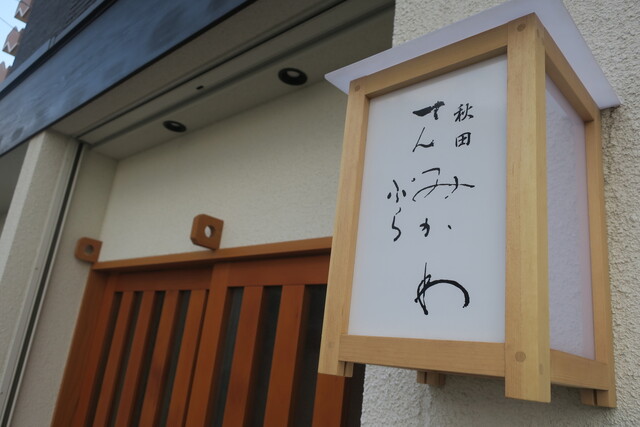 秋田
てんぷら
みかわ